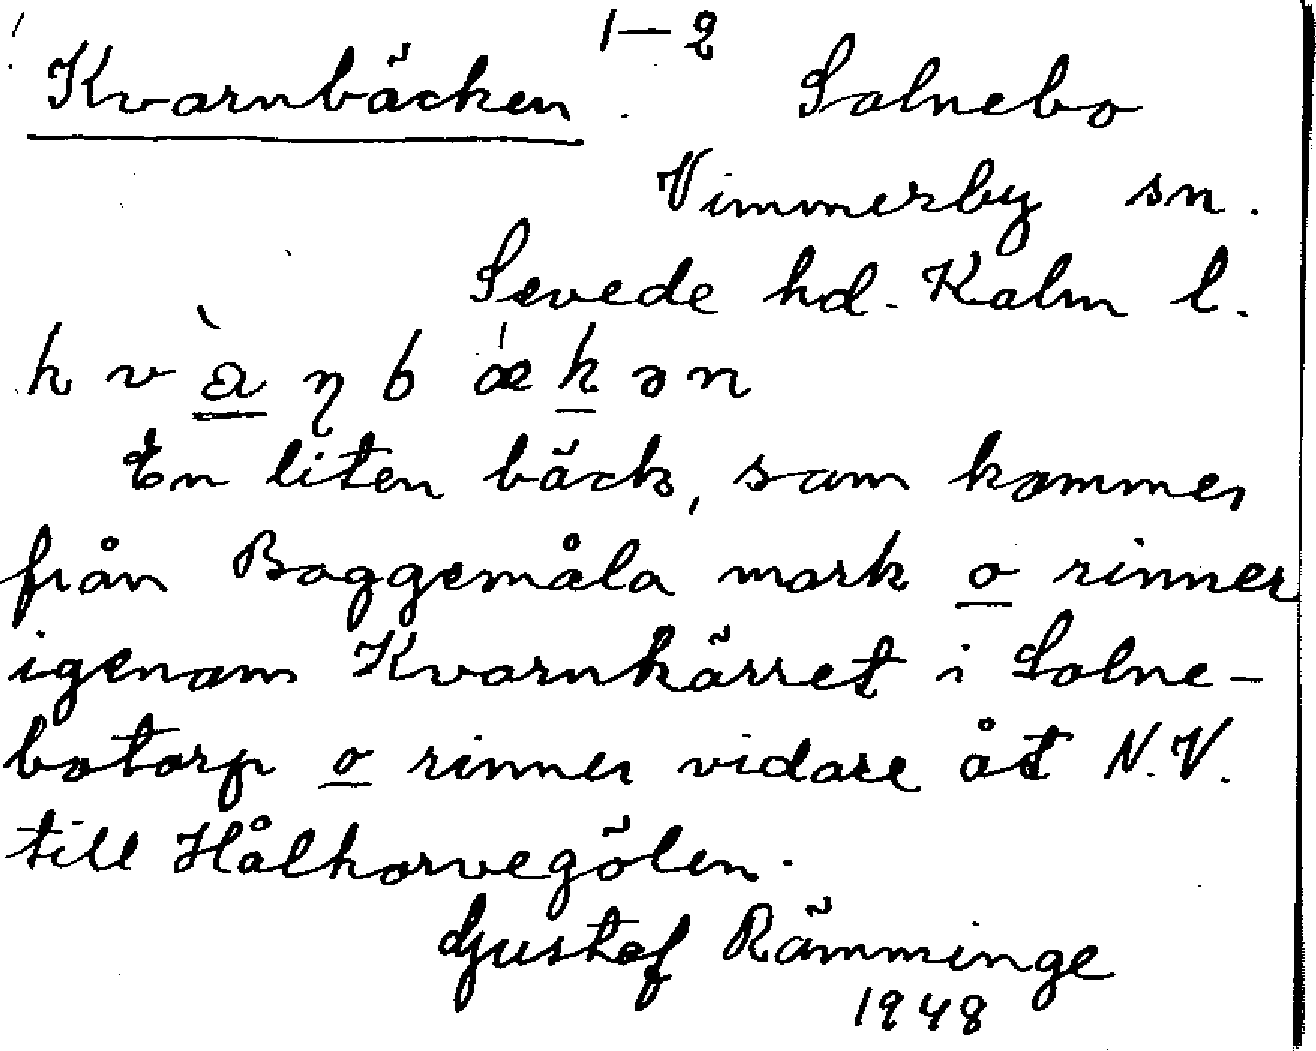 1–2
Kvarnbäcken Solnebo
Vimmerby sn.
Sevede hd. Kalm l.
k v à ŋ b ǽ k ə n
En liten bäck, som kommer
från Boggemåla mark o rinner
igenom Kvarnkärret i Solne-
botorp o rinner vidare åt N.V.
till Hålkorvegölen.
Gustaf Rämminge
1948